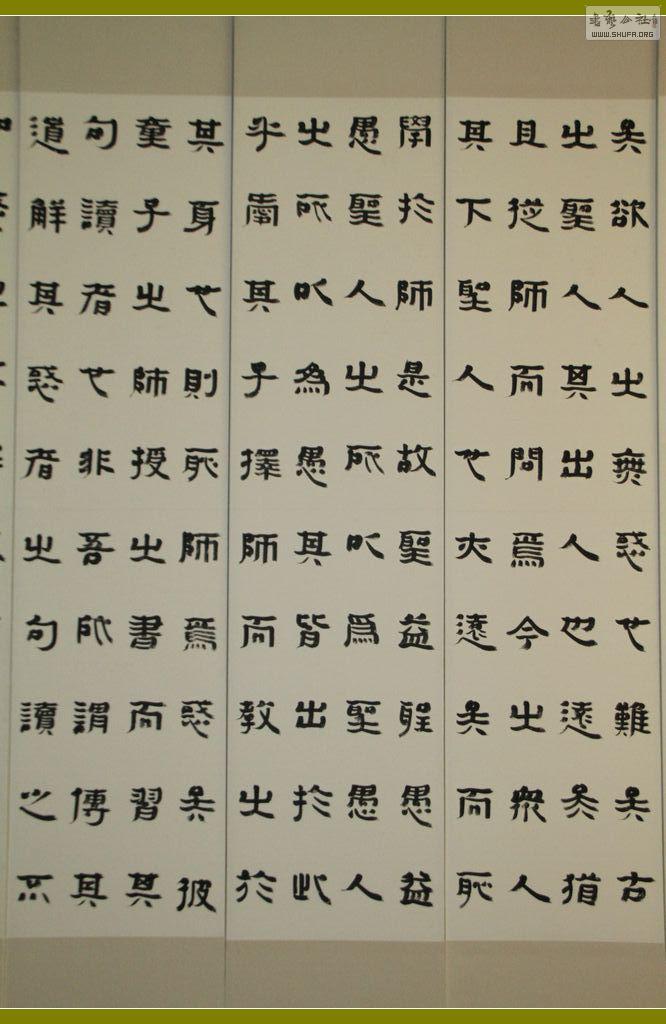 矣欲人之無惑也難矣古
之聖人其出人也遠矣猶
且從師而問焉今之衆人
其下聖人也夫遠矣而恥
學於師是故聖益聖愚益
愚聖人之所以爲聖愚人
之所以為愚其皆出於此
乎愛其子擇師而教之於
其身也則恥師焉惑矣彼
童子之師授之書而習其
句讀者也非吾所謂傳其
道解其惑者之句讀之不
書藝公社
WWW.SHUFA.ORG